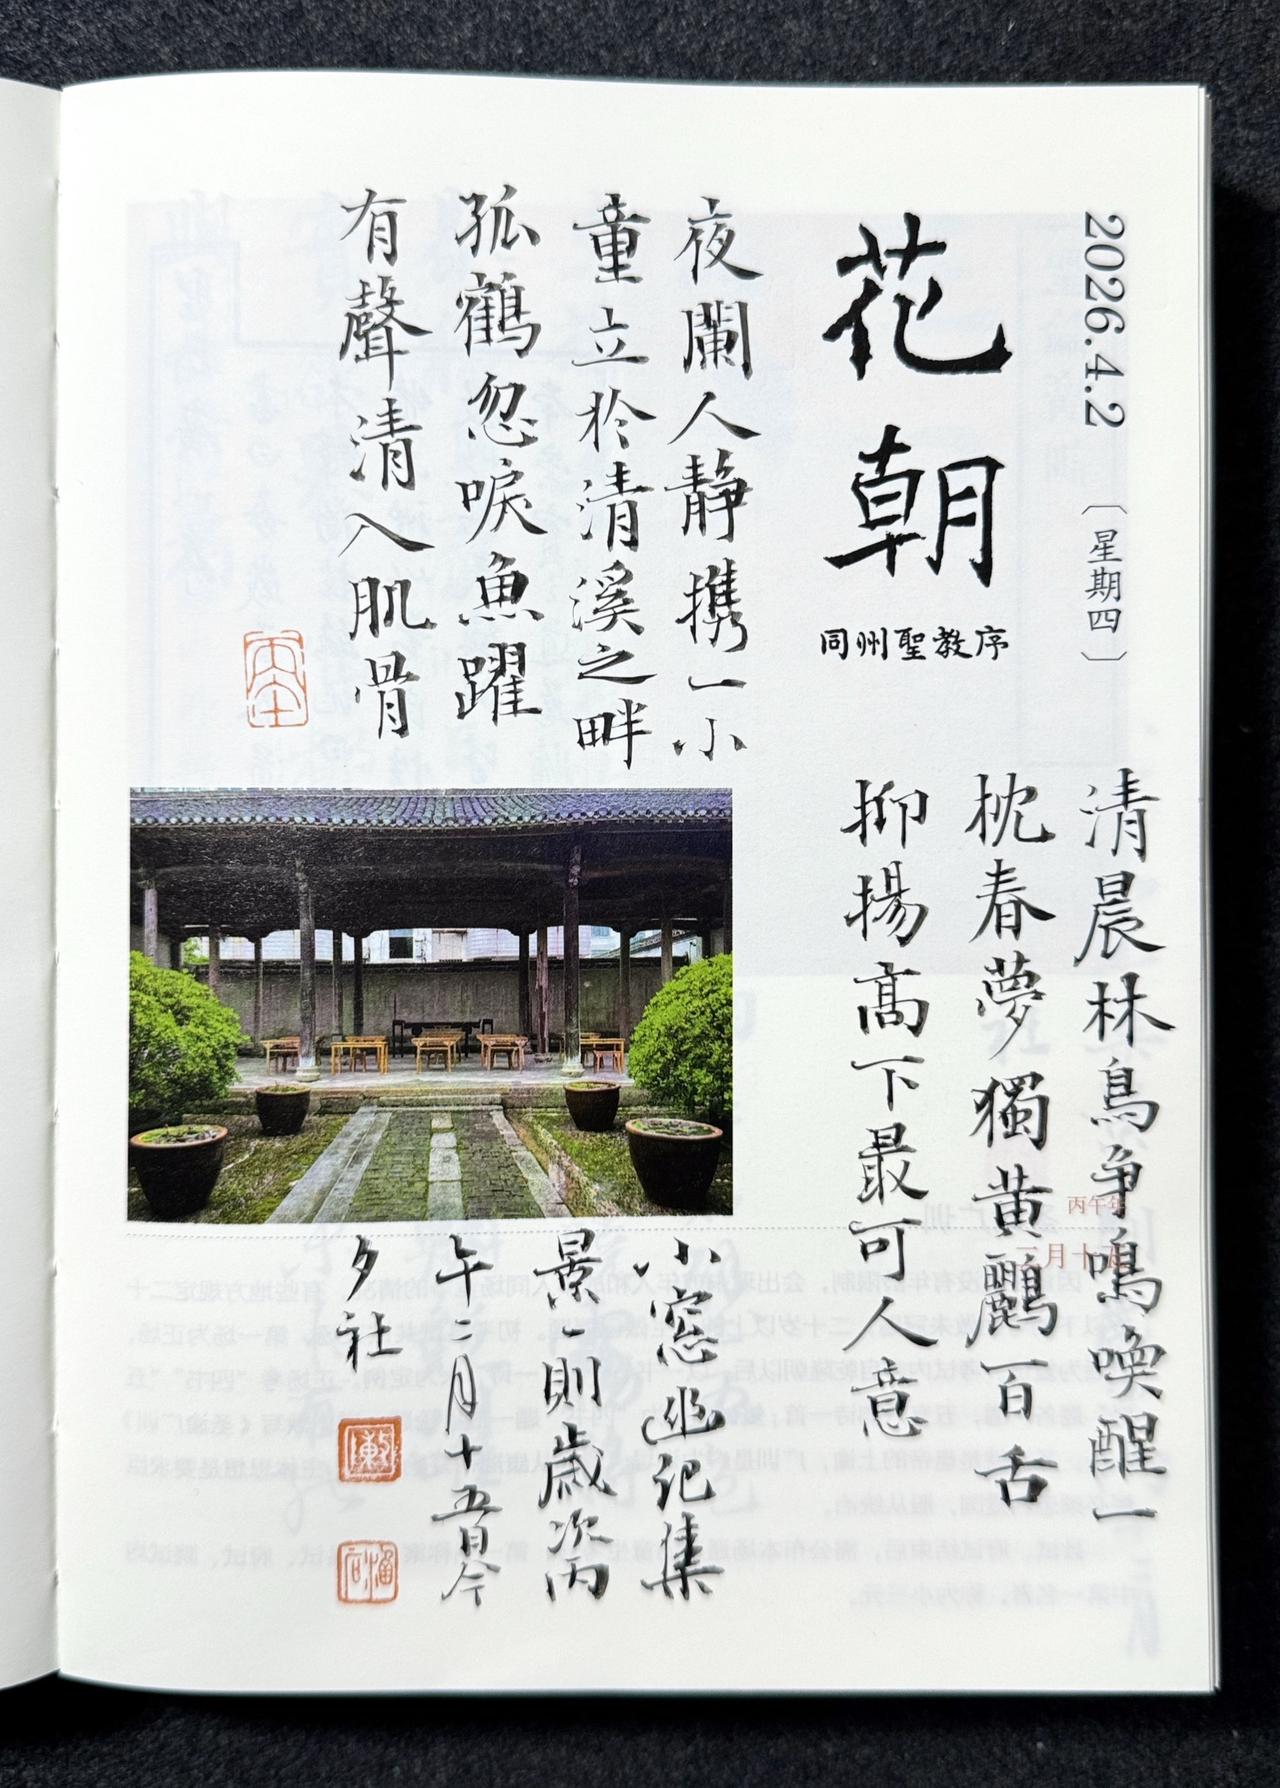 2026.4.2〔星期四〕
花朝
同州聖教序
丙午年
二月十
清晨林鳥争鳴喚醒一
枕春夢獨黄鸝百舌
抑揚髙下最可人意
夜闌人靜携一小
童立於清溪之畔
孤鶴忽唳魚躍
有聲清入肌骨
小窓幽记集
景一則歲次丙
午二月十五日今
夕社